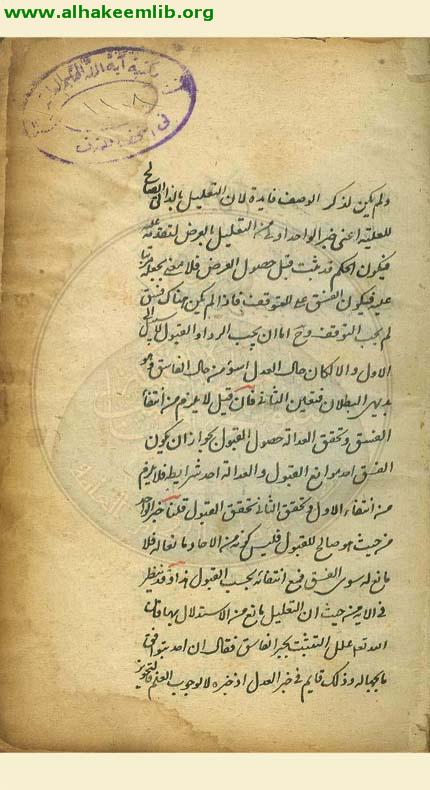 www.alhakeemlib.org
مكتبة آية الله الحكيم العامة
١١٠٨
ولم يكن لذكر الوصف فايدة لان التعليل بالذاتى الصالح
للعلية اعنى خبر الواحد اولى من التعليل بالعرضى لتقدمه عليه
فيكون الحكم قد ثبت قبل حصول العرضى فلا معنى بجعله
عليه فيكون الفسق علة للتوقف فاذا لم يكن هناك فسق
لم يجب التوقف وح اما ان يجب الرد او القبول لا سبيل الى
الاول والا لكان حال العدل اسوء من حال الفاسق وهو
بديهى البطلان فتعين الثانى فان قيل لا يلزم من انتفاء
الفسق وتحقق العدالة حصول القبول لجواز ان يكون
الفسق احد موانع القبول والعدالة احد شرايطه فلا يلزم
من انتفاء الاول وتحقق الثانى تحقق القبول قلنا خبر الواحد
من حيث هو صالح للقبول فليس كونه من الاحاد مانعا له فلا
مانع له سوى الفسق فمع انتفائه يجب القبول هذا وقد ينظر
فى الامر من حيث ان التعليل مانع من الاستدلال بها فان
الله تعالى علل التثبت بخبر الفاسق فقال ان تصيبوا قوما
بجهالة وذلك قايم فى خبر العدل اذ خبره لا يوجب العلم فالتجويز